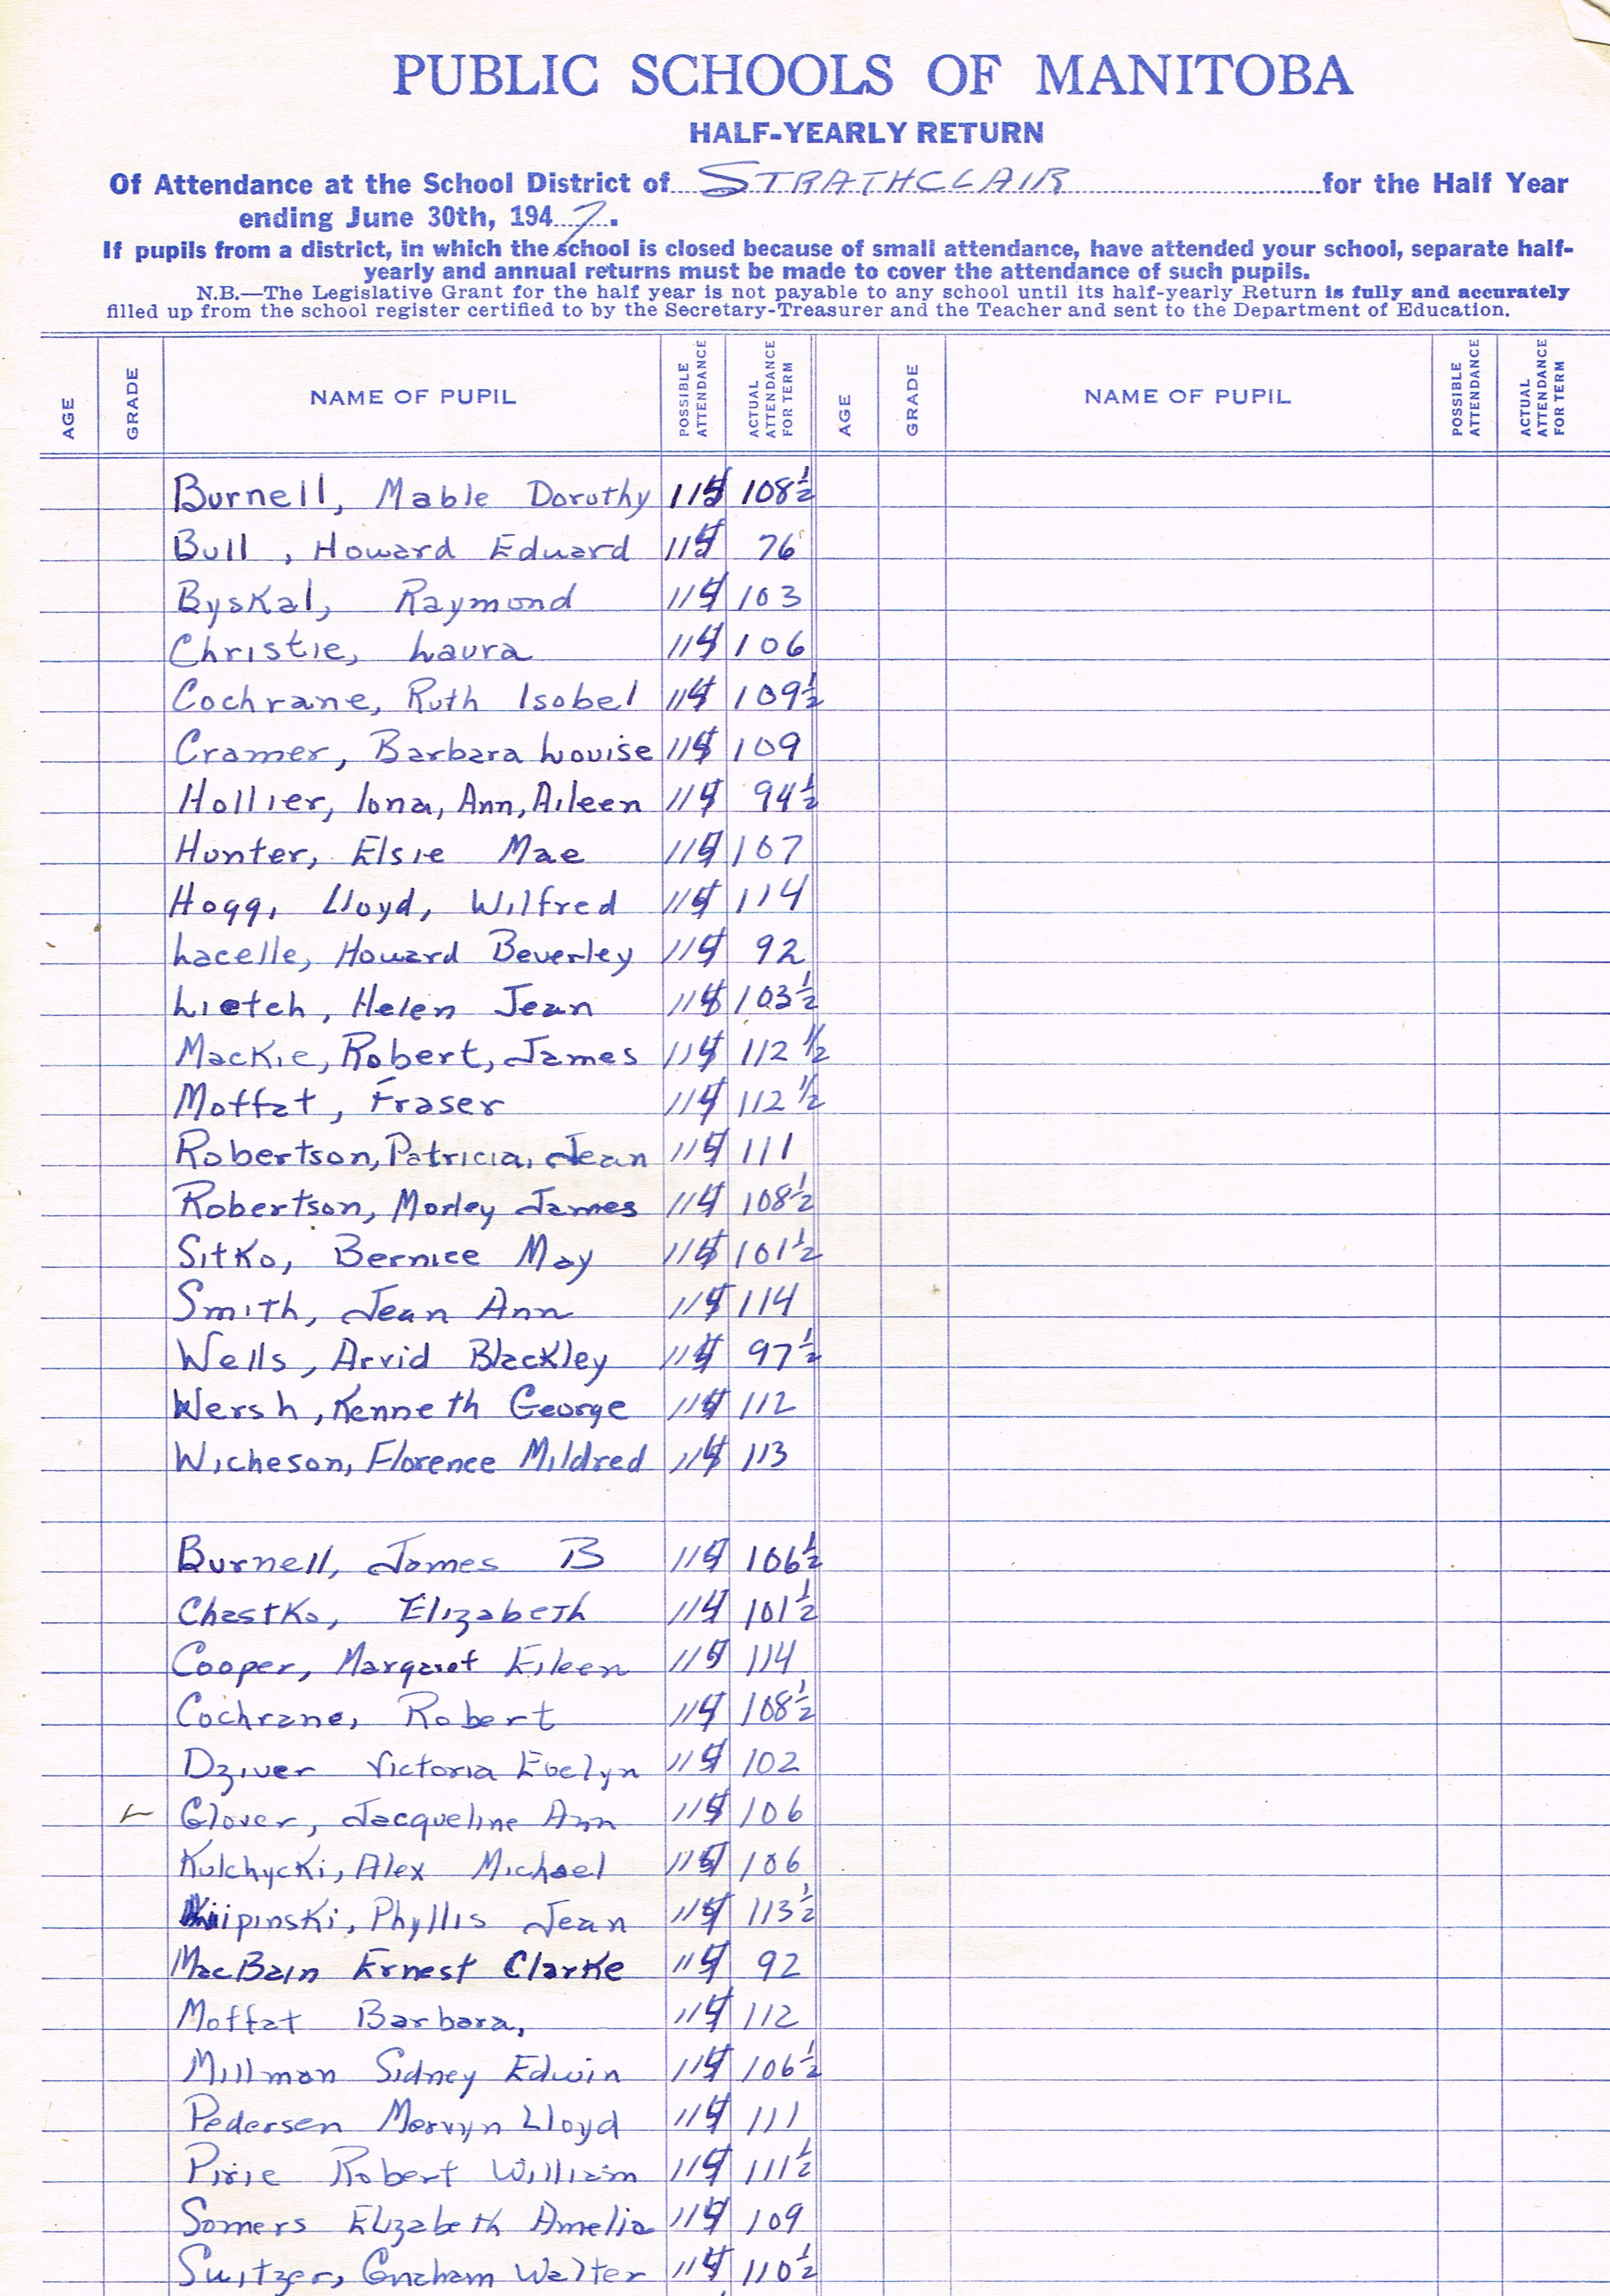 PUBLIC SCHOOLS OF MANITOBA
HALF-YEARLY RETURN
Of Attendance at the School District of STRATHCLAIR for the Half Year
ending June 30th, 1947.
If pupils from a district, in which the school is closed because of small attendance, have attended your school, separate half-
yearly and annual returns must be made to cover the attendance of such pupils.
N.B.—The Legislative Grant for the half year is not payable to any school until its half-yearly Return is fully and accurately
filled up from the school register certified to by the Secretary-Treasurer and the Teacher and sent to the Department of Education.
AGE GRADE NAME OF PUPIL POSSIBLE ATTENDANCE ACTUAL ATTENDANCE FOR TERM AGE GRADE NAME OF PUPIL POSSIBLE ATTENDANCE ACTUAL ATTENDANCE FOR TERM
Burnell, Mable Dorothy 114 108½
Bull, Howard Edward 114 76
Byskal, Raymond 114 103
Christie, Laura 114 106
Cochrane, Ruth Isobel 114 109½
Cramer, Barbara Louise 114 109
Hollier, Iona, Ann, Aileen 114 94½
Hunter, Elsie Mae 114 107
Hogg, Lloyd, Wilfred 114 114
Lacelle, Howard Beverley 114 92
Lietch, Helen Jean 114 103½
Mackie, Robert, James 114 112½
Moffat, Fraser 114 112½
Robertson, Patricia, Jean 114 111
Robertson, Morley James 114 108½
Sitko, Bernice May 114 101½
Smith, Jean Ann 114 114
Wells, Arvid Blackley 114 97½
Wersh, Kenneth George 114 112
Wicheson, Florence Mildred 114 113
Burnell, James B 114 106½
Chastko, Elizabeth 114 101½
Cooper, Margaret Eileen 114 114
Cochrane, Robert 114 108½
Dziver Victoria Evelyn 114 102
Glover, Jacqueline Ann 114 106
Kulchycki, Alex Michael 114 106
Phyllis Jean 114 113½
MacBain Ernest Clarke 114 92
Moffat Barbara, 114 112
Millman Sidney Edwin 114 106½
Pedersen Mervyn Lloyd 114 111
Pirie Robert William 114 111½
Somers Elizabeth Amelia 114 109
Switzer, Graham Walter 114 110½